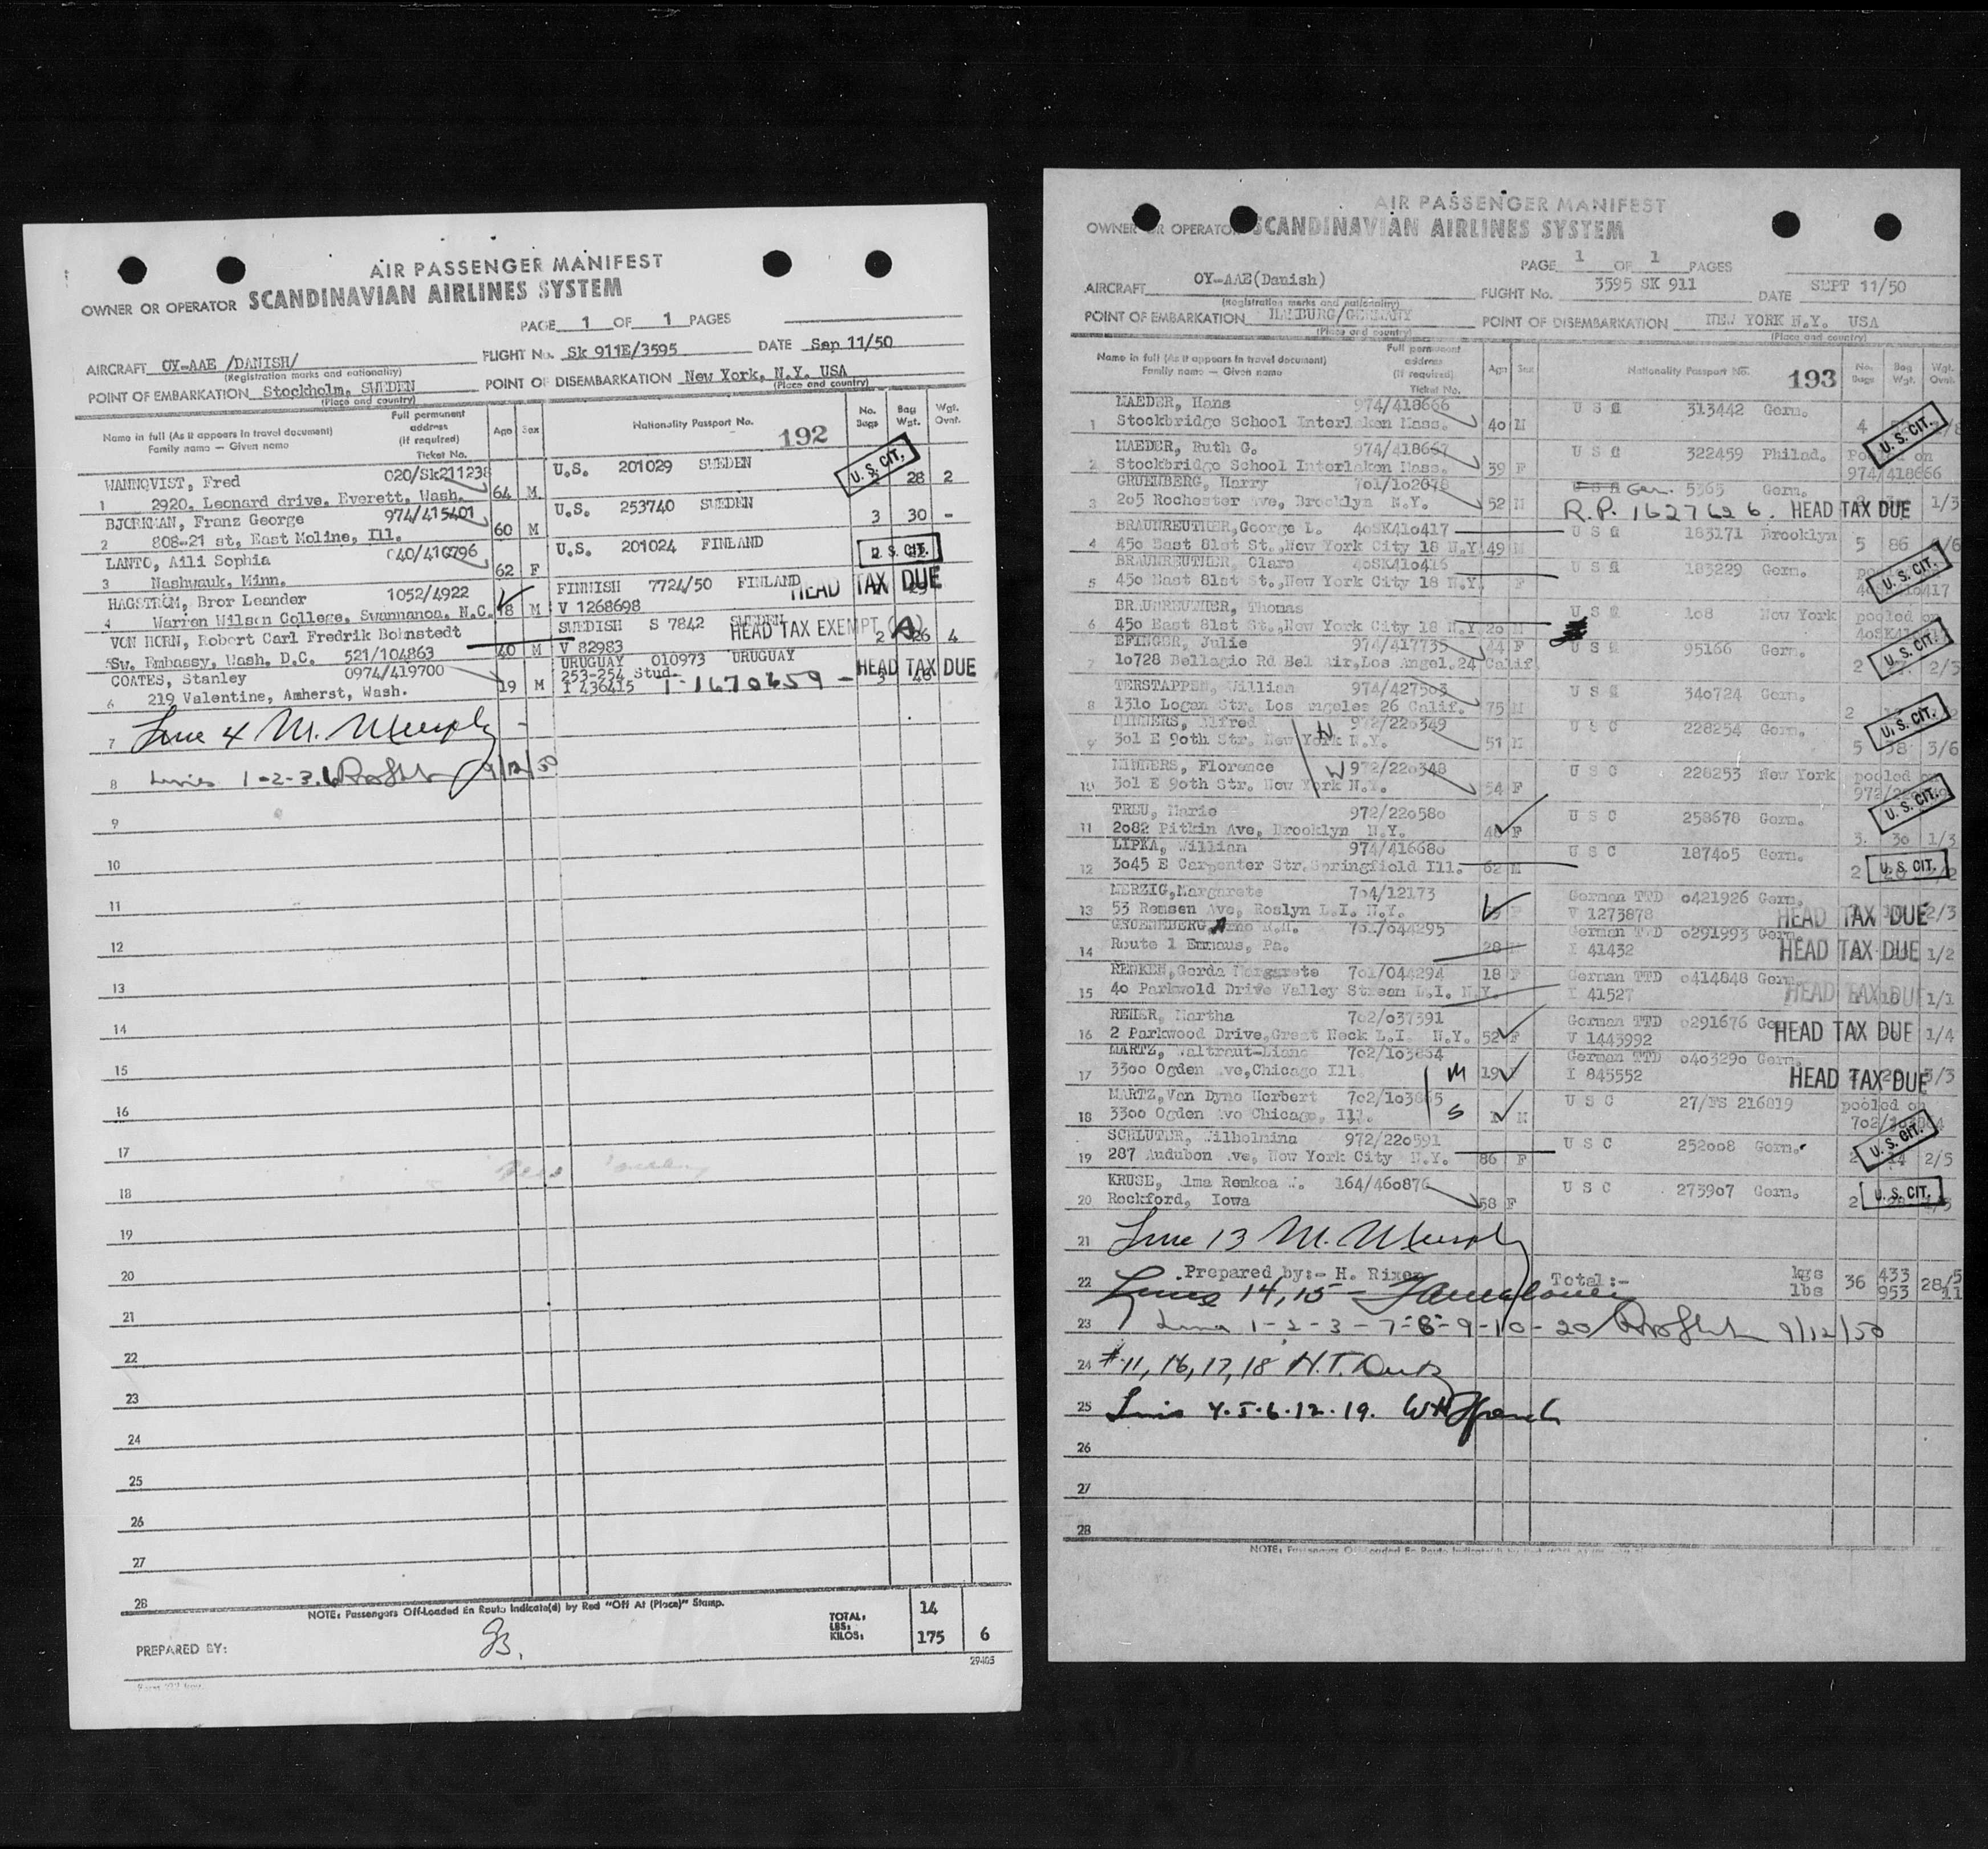 AIR PASSENGER MANIFEST
OWNER OR OPERATOR SCANDINAVIAN AIRLINES SYSTEM
PAGE 1 OF 1 PAGES
AIRCRAFT OY-AAE /DANISH/ FLIGHT No. Sk 911E/3595 DATE Sep 11/50
(Registration marks and nationality)
POINT OF EMBARKATION Stockholm, SWEDEN POINT OF DISEMBARKATION New York, N.Y. USA
(Place and country) (Place and country)
Name in full (As it appears in travel document) Family name — Given name Full permanent address (If required) Ticket No. Age Sex Nationality Passport No. 192 No. Bags Bag Wgt. Wgt. Ovnt.
WANNQVIST, Fred 020/Sk211238 U.S. 201029 SWEDEN U.S. CIT. 28 2
1 2920. Leonard drive. Everett, Wash. 64 M
BJORKMAN, Franz George 974/415401 U.S. 253740 SWEDEN 3 30 -
2 808-21 st, East Moline, Ill. 60 M
LANTO, Aili Sophia 040/410796 U.S. 201024 FINLAND U.S. CIT.
3 Nashwauk, Minn. 62 F
HAGSTRÖM, Bror Leander 1052/4922 FINNISH 7724/50 FINLAND HEAD TAX DUE
4 Warren Wilson College, Swannanoa, N.C. 18 M V 1268698
VON HORN, Robert Carl Fredrik Bohnstedt SWEDISH S 7842 SWEDEN HEAD TAX EXEMPT A 2 26 4
5 Sw. Embassy, Wash. D.C. 521/104863 40 M V 82983
COATES, Stanley 0974/419700 URUGUAY 010973 URUGUAY HEAD TAX DUE
6 219 Valentine, Amherst, Wash. 19 M 253-254 Stud. I 436415 T-1670659 -
7 Line 4 M. Murphy
8 Lines 1-2-3.6 9/12/50
9
10
11
12
13
14
15
16
17
18
19
20
21
22
23
24
25
26
27
28
NOTE: Passengers Off-Loaded En Route Indicate(d) by Red "Off At (Place)" Stamp.
PREPARED BY: TOTAL: LBS: KILOS: 14 175 6
29405
AIR PASSENGER MANIFEST
OWNER OR OPERATOR SCANDINAVIAN AIRLINES SYSTEM
PAGE 1 OF 1 PAGES
AIRCRAFT OY-AAE(Danish) FLIGHT No. 3595 SK 911 DATE SEPT 11/50
(Registration marks and nationality)
POINT OF EMBARKATION HAMBURG/GERMANY POINT OF DISEMBARKATION NEW YORK N.Y. USA
(Place and country) (Place and country)
Name in full (As it appears in travel document) Family name — Given name Full permanent address (If required) Ticket No. Age Sex Nationality Passport No. 193 No. Bags Bag Wgt. Wgt. Ovnt.
MAEDER, Hans 974/418666 U S C 313442 Germ. 4 U.S. CIT.
1 Stockbridge School Interlaken Mass. 40 M
MAEDER, Ruth G. 974/418667 U S C 322459 Philad.
2 Stockbridge School Interlaken Mass. 39 F 974/418666
GRUENBERG, Harry 701/102078 Ger. 5365 Germ.
3 205 Rochester Ave, Brooklyn N.Y. 52 M R.P. 1627626. HEAD TAX DUE 1/3
BRAUNREUTHER, George L. 40SK410417 U S C 183171 Brooklyn
4 450 East 81st St., New York City 18 N.Y. 49 M 5 86
BRAUNREUTHER, Clara 40SK410416 U S C 183229 Germ. U.S. CIT.
5 450 East 81st St., New York City 18 N.Y. F
BRAUNREUTHER, Thomas U S C 108 New York pooled on
6 450 East 81st St., New York City 18 N.Y. 20 M
EFINGER, Julie 974/417735 44 F U S C 95166 Germ. U.S. CIT.
7 10728 Bellagio Rd Bel Air, Los Angel. 24 Calif. 2 2/3
TERSTAPPEN, William 974/427503 U S C 340724 Germ.
8 1310 Logan Str. Los Angeles 26 Calif. 75 M 2 U.S. CIT.
MINDERS, Alfred W 972/220349 U S C 228254 Germ.
9 301 E 90th Str. New York N.Y. 51 M 5 38 3/6
MINDERS, Florence W 972/220348 U S C 228253 New York pooled on
10 301 E 90th Str. New York N.Y. 54 F U.S. CIT.
TREU, Marie 972/220580 U S C 258678 Germ.
11 2082 Pitkin Ave, Brooklyn N.Y. F 3. 30 1/3
LIPKA, William 974/416680 U S C 187405 Germ.
12 3045 E Carpenter Str. Springfield Ill. 62 M 2 U.S. CIT.
MERZIG, Margarete 704/12173 German TTD 0421926 Germ.
13 53 Remsen Ave, Roslyn L.I. N.Y. V 1273878 HEAD TAX DUE 2/3
701/044295 German TTD 0291993 Germ.
14 Route 1 Emmaus, Pa. 28 I 41432 HEAD TAX DUE 1/2
RENKEN, Gerda Margarete 701/044294 18 F German TTD 0414848 Germ.
15 40 Parkwold Drive Valley Stream L.I. N.Y. I 41527 HEAD TAX DUE 1/1
Martha 702/037391 German TTD 0291676 Ge
16 2 Parkwood Drive, Great Neck L.I. N.Y. 52 F V 1443992 HEAD TAX DUE 1/4
MARTZ, Waltraut-Liane 702/103864 German TTD 0403290 Germ.
17 3300 Ogden Ave, Chicago Ill M 19 I 845552 HEAD TAX DUE 3/3
MARTZ, Van Dyne Herbert 702/103865 U S C 27/FS 216819 pooled on
18 3300 Ogden Ave Chicago, Ill. S M
SCHLUTER, Wilhelmina 972/220591 U S C 252008 Germ. U.S. CIT.
19 287 Audubon Ave, New York City N.Y. 86 F 2 14 2/5
KRUSE, Alma Remkea W. 164/460876 U S C 273907 Germ.
20 Rockford, Iowa 58 F 2 U.S. CIT.
21 Line 13 M. Murphy
22 Prepared by:- H. Rixen Total:- kgs lbs 36 433 953 28/5 11
Lines 14, 15
23 Line 1-2-3-7-8-9-10-20 9/12/50
24 #11, 16, 17, 18 H.T.
25 Lines 4.5.6.12.19.
26
27
28